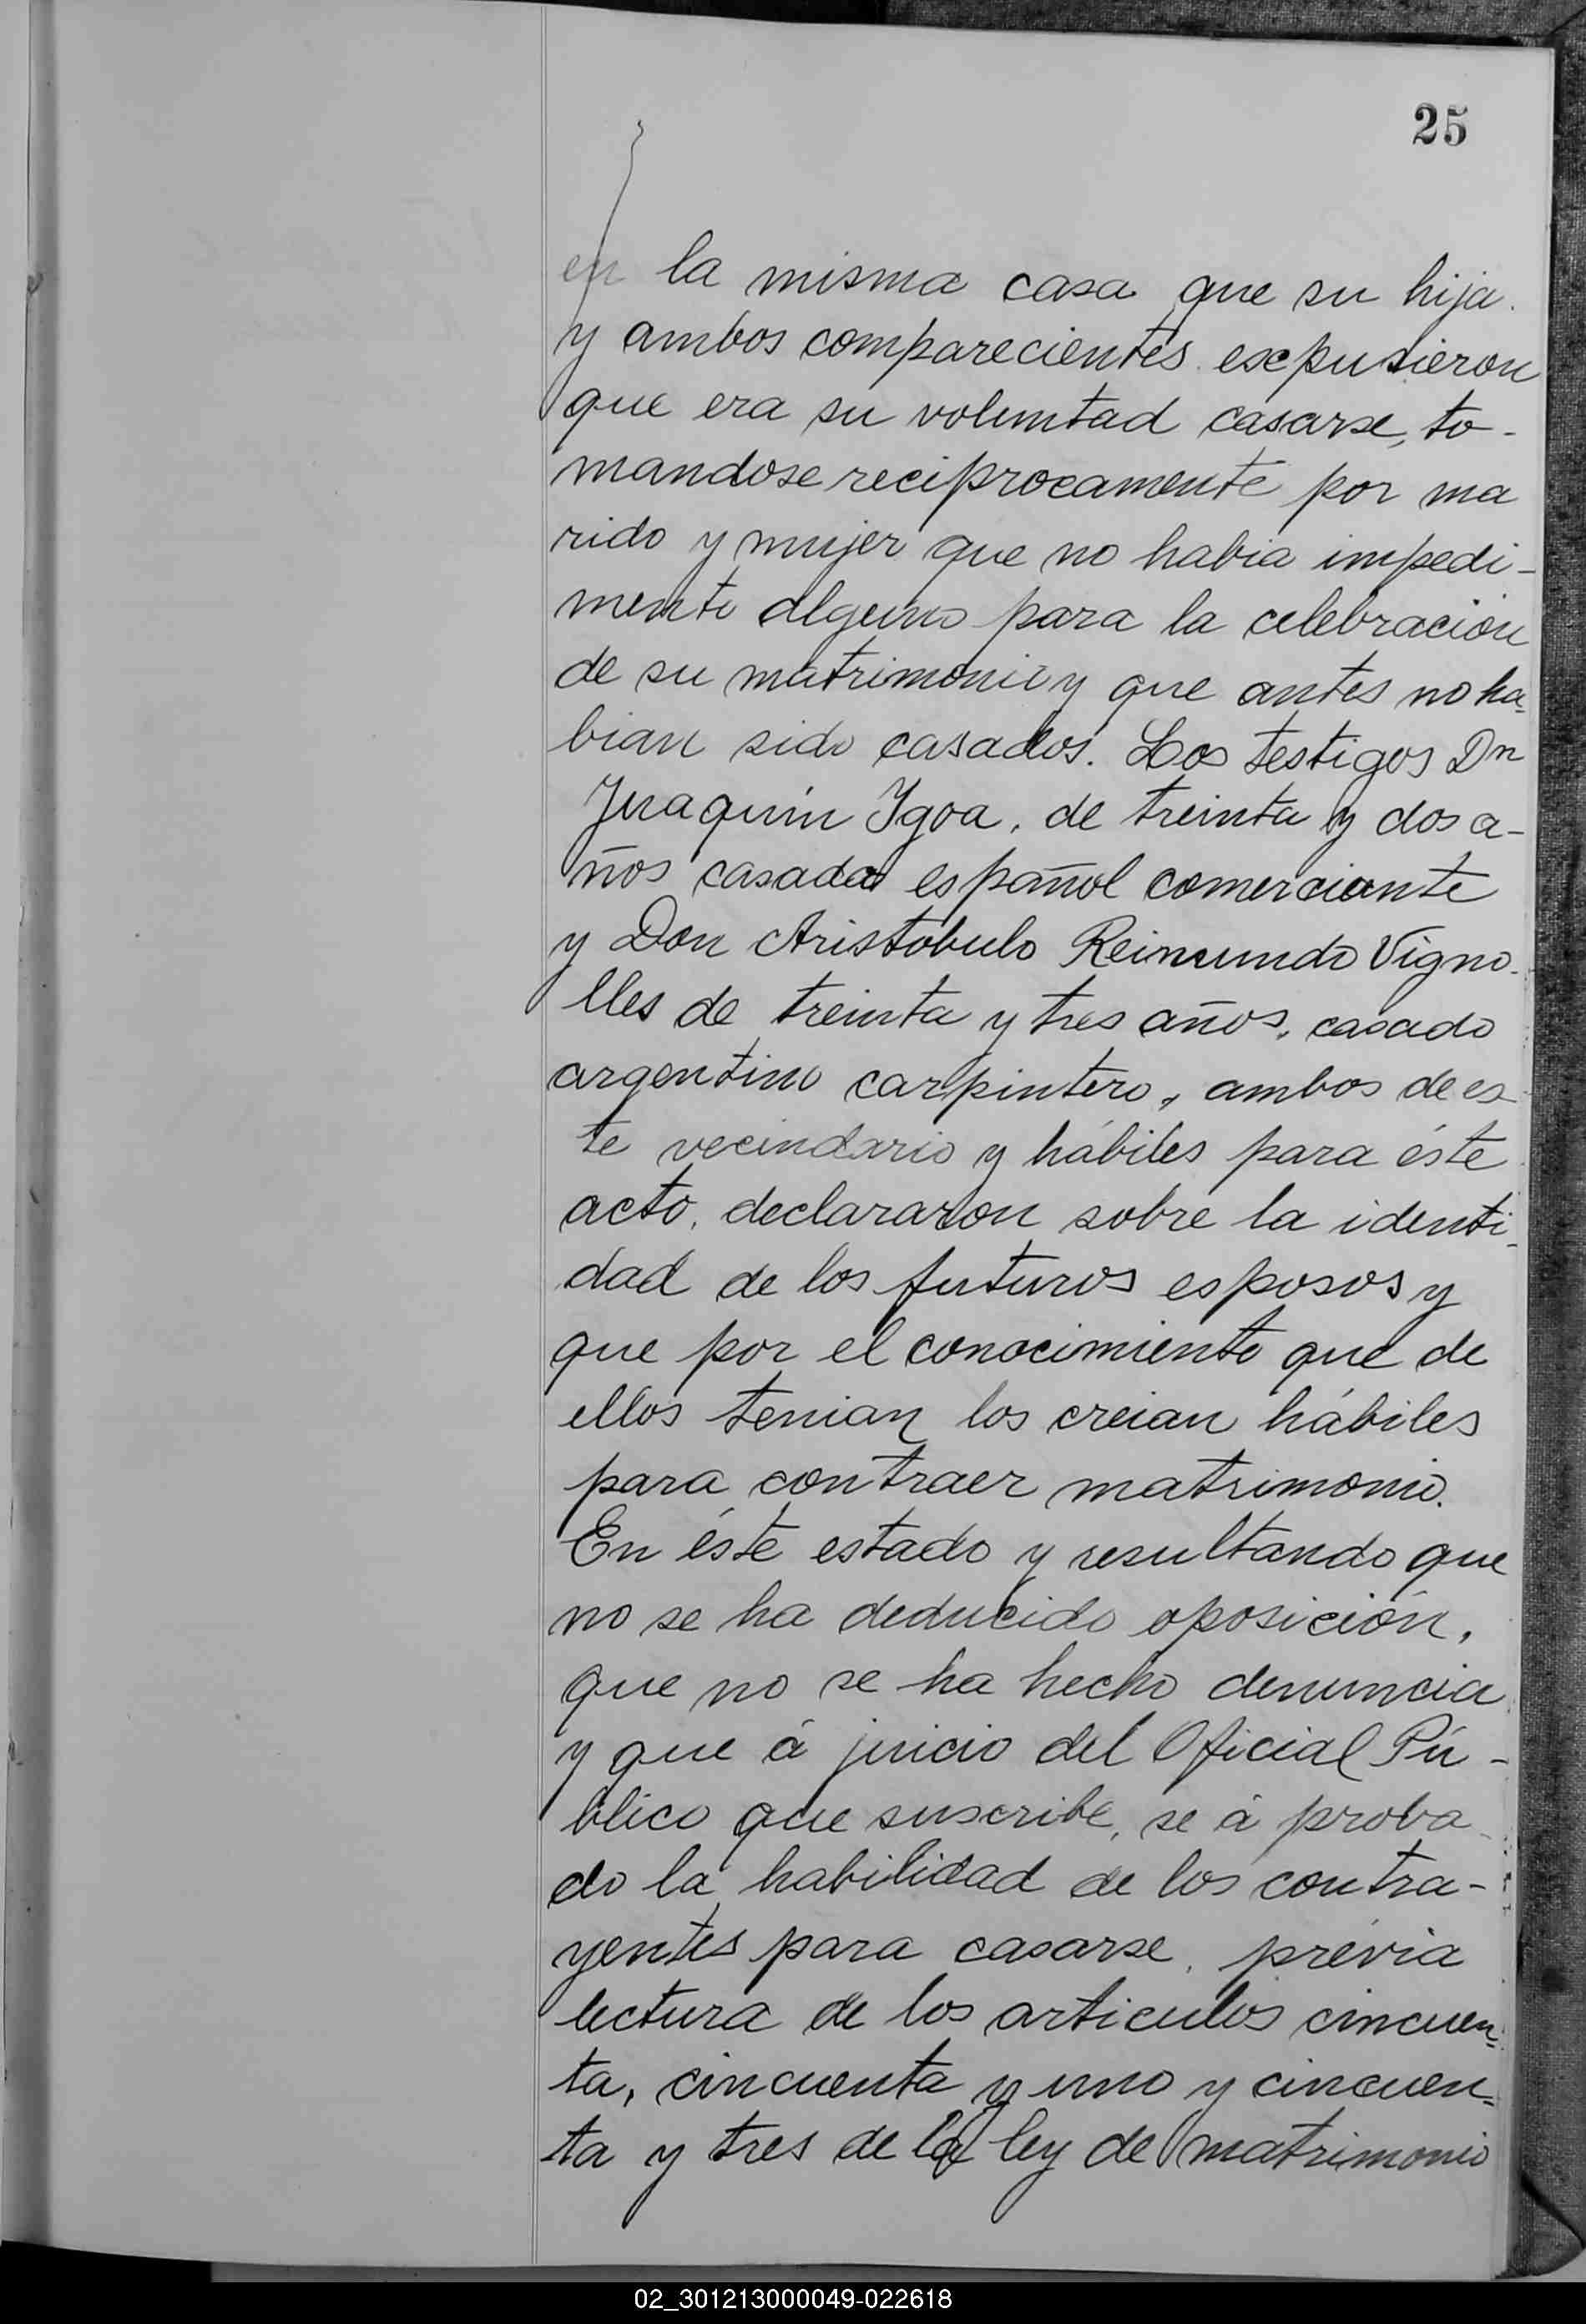 25
en la misma casa que su hija.
y ambos comparecientes escpusieron
que era su voluntad casarse, to-
mandose reciprocamente por ma
rido y mujer que no habia impedi-
mento alguno para la celebración
de su matrimonio y que antes no ha-
bian sido casados. Los testigos Dn
Juaquin Ygoa, de treinta y dos a-
ños casado español comerciante
y Don Aristobulo Reimundo Vigno-
lles de treinta y tres años, casado
argentino carpintero, ambos de es-
te vecindario y hábiles para éste
acto, declararon sobre la identi-
dad de los futuros esposos y
que por el conocimiento que de
ellos tenian los creian hábiles
para contraer matrimonio.
En éste estado y resultando que
no se ha deducido oposición,
que no se ha hecho denuncia
y que á juicio del Oficial Pú-
blico que suscribe, se á proba-
do la habilidad de los contra-
yentes para casarse, prévia
lectura de los articulos cincuen-
ta, cincuenta y uno y cincuen-
ta y tres de la ley de matrimonio
02_301213000049-022618